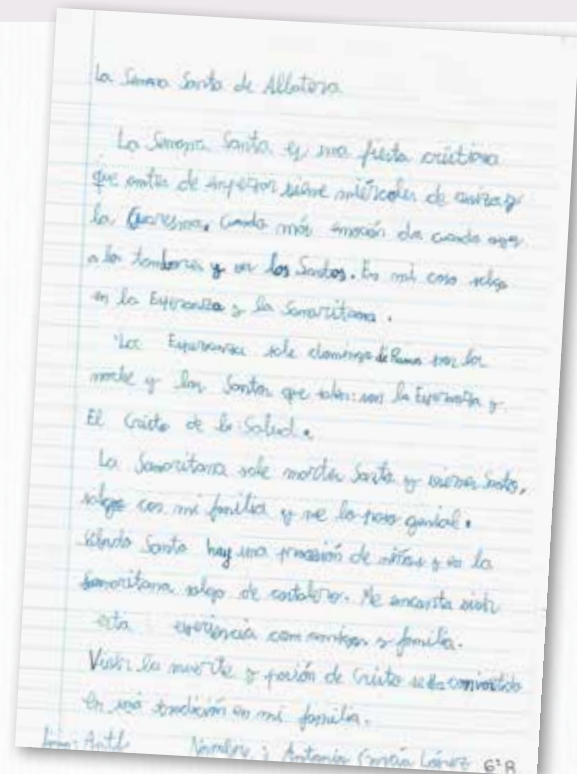 La Semana Santa de Albatera
La Semana Santa es una fiesta cristiana
que antes de empezar viene miércoles de ceniza y
la Cuaresma. Cuando más emoción da cuando oyes
a los tambores y ver los Santos. En mi caso salgo
en la Esperanza y la Samaritana.
La Esperanza sale domingo de Ramos por la
noche y los Santos que salen: son la Esperanza y
El Cristo de la Salud.
La Samaritana sale martes Santo y viernes Santo,
salgo con mi familia y me lo paso genial.
Sábado Santo hay una procesión de niños y en la
Samaritana salgo de costalero. Me encanta vivir
esta experiencia con amigos y familia.
Vivir la muerte y pasión de Cristo se ha convertido
en una tradición en mi familia.
Nombre: Antonio García López 6ºB